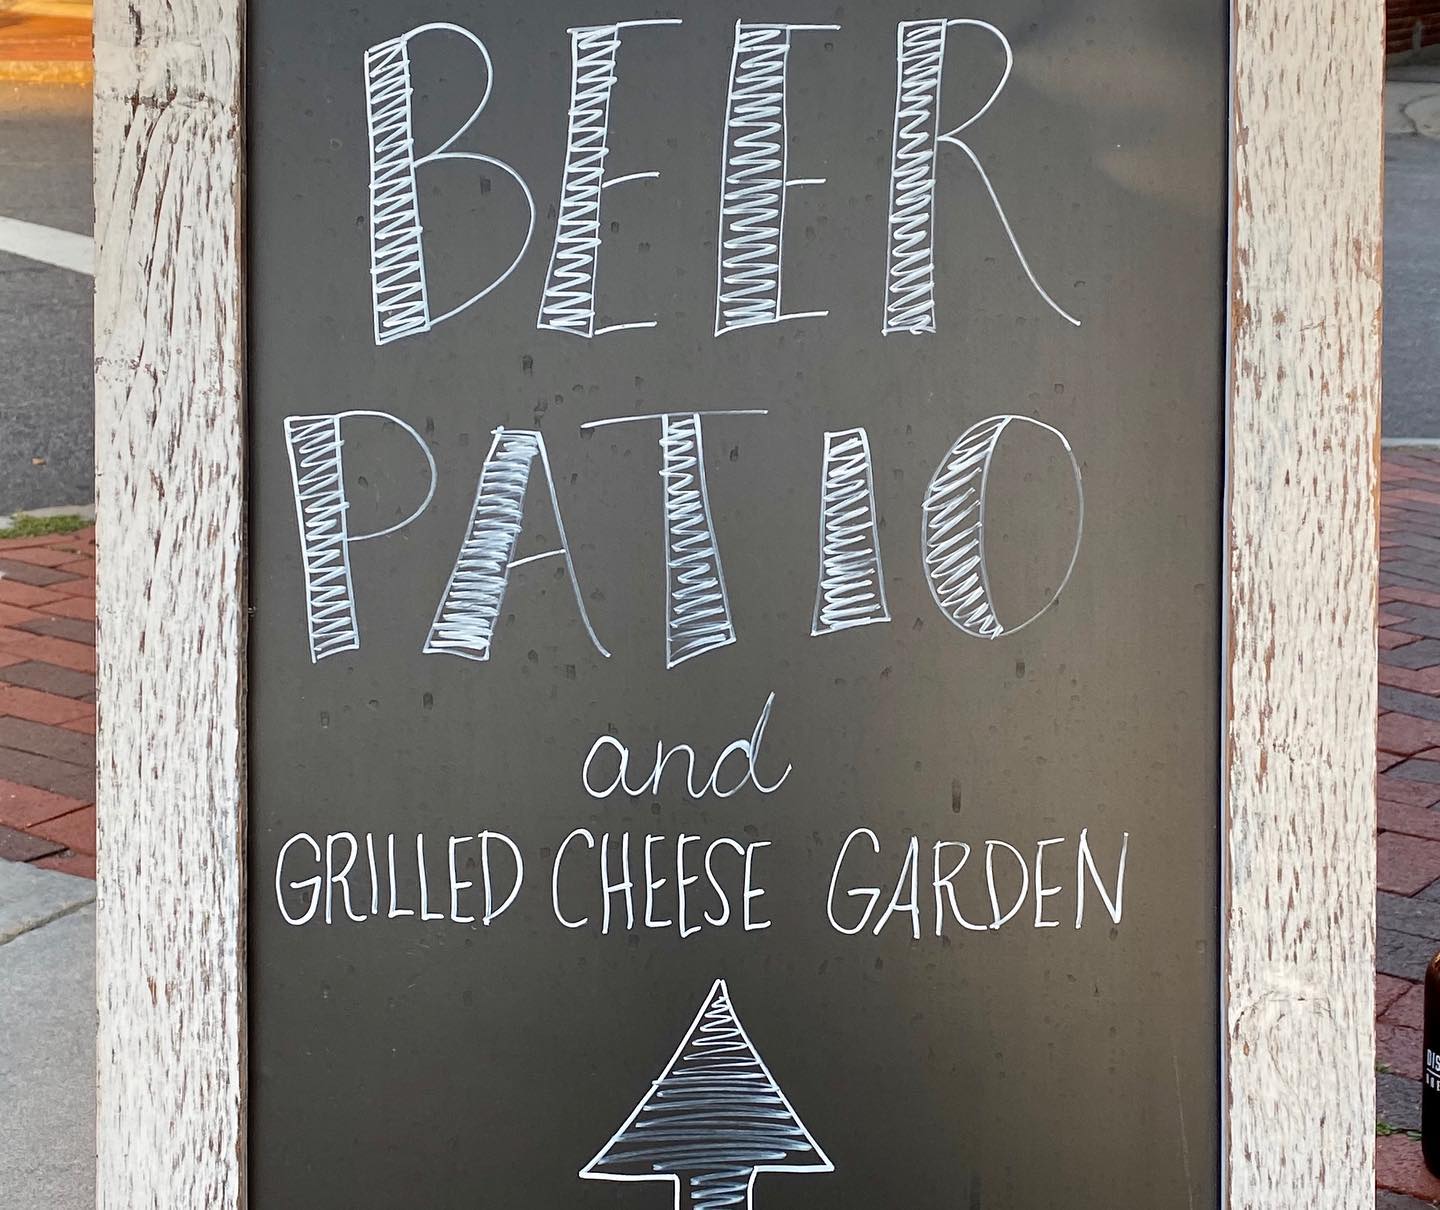 BEER
PATIO
and
GRILLED CHEESE GARDEN